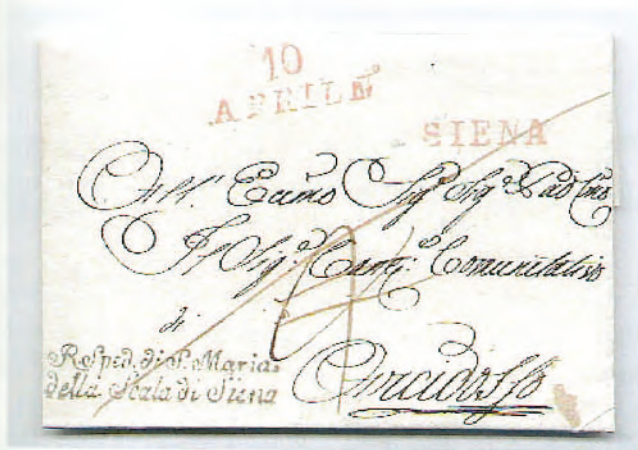 10
APRILE
SIENA
All' Eccmo Sigr Sigr Pad Cmo
Il Sigr Canc: Comunitativo
di
Arcidosso
R. Sped. di S. Maria
della Scala di Siena